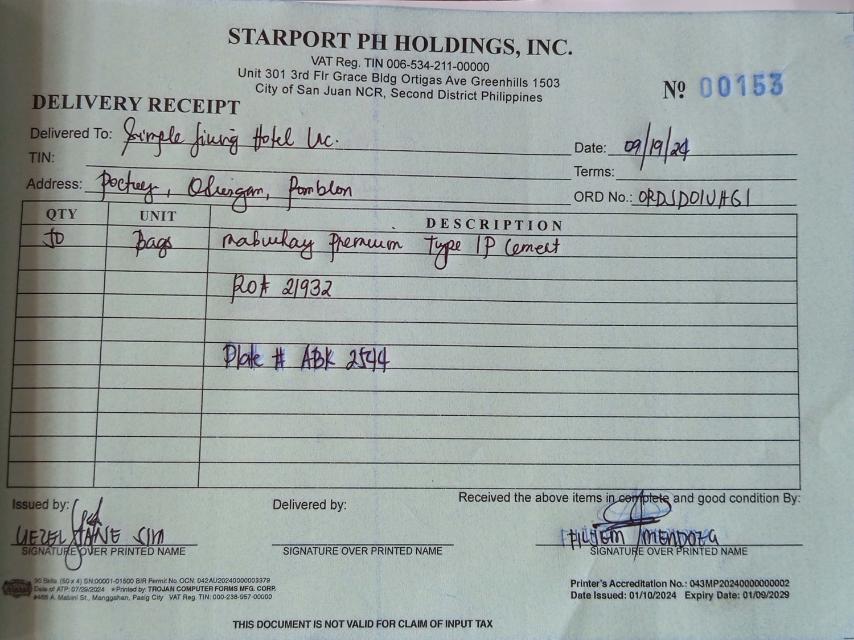 STARPORT PH HOLDINGS, INC.
VAT Reg. TIN 006-534-211-00000
Unit 301 3rd Flr Grace Bldg Ortigas Ave Greenhills 1503
City of San Juan NCR, Second District Philippines
Nº 00153
DELIVERY RECEIPT
Delivered To: Simple Living Hotel
Date: 09/19/24
TIN:
Terms:
Address:
ORD No.:
QTY UNIT DESCRIPTION
bags Premium Type 1P Cement
21932
Plate # ABK 2544
Issued by:
Delivered by:
Received the above items in complete and good condition By:
JANE SIM
MENDOZA
SIGNATURE OVER PRINTED NAME
SIGNATURE OVER PRINTED NAME
SIGNATURE OVER PRINTED NAME
(50 x 4) SN:00001-01500 BIR Permit No. OCN: 042AU20240000003379
Date of ATP: 07/29/2024 Printed by: TROJAN COMPUTER FORMS MFG. CORP.
A. Mabini St., Manggahan, Pasig City VAT Reg. TIN: 000-238-957-00000
Printer's Accreditation No.: 043MP20240000000002
Date Issued: 01/10/2024 Expiry Date: 01/09/2029
THIS DOCUMENT IS NOT VALID FOR CLAIM OF INPUT TAX